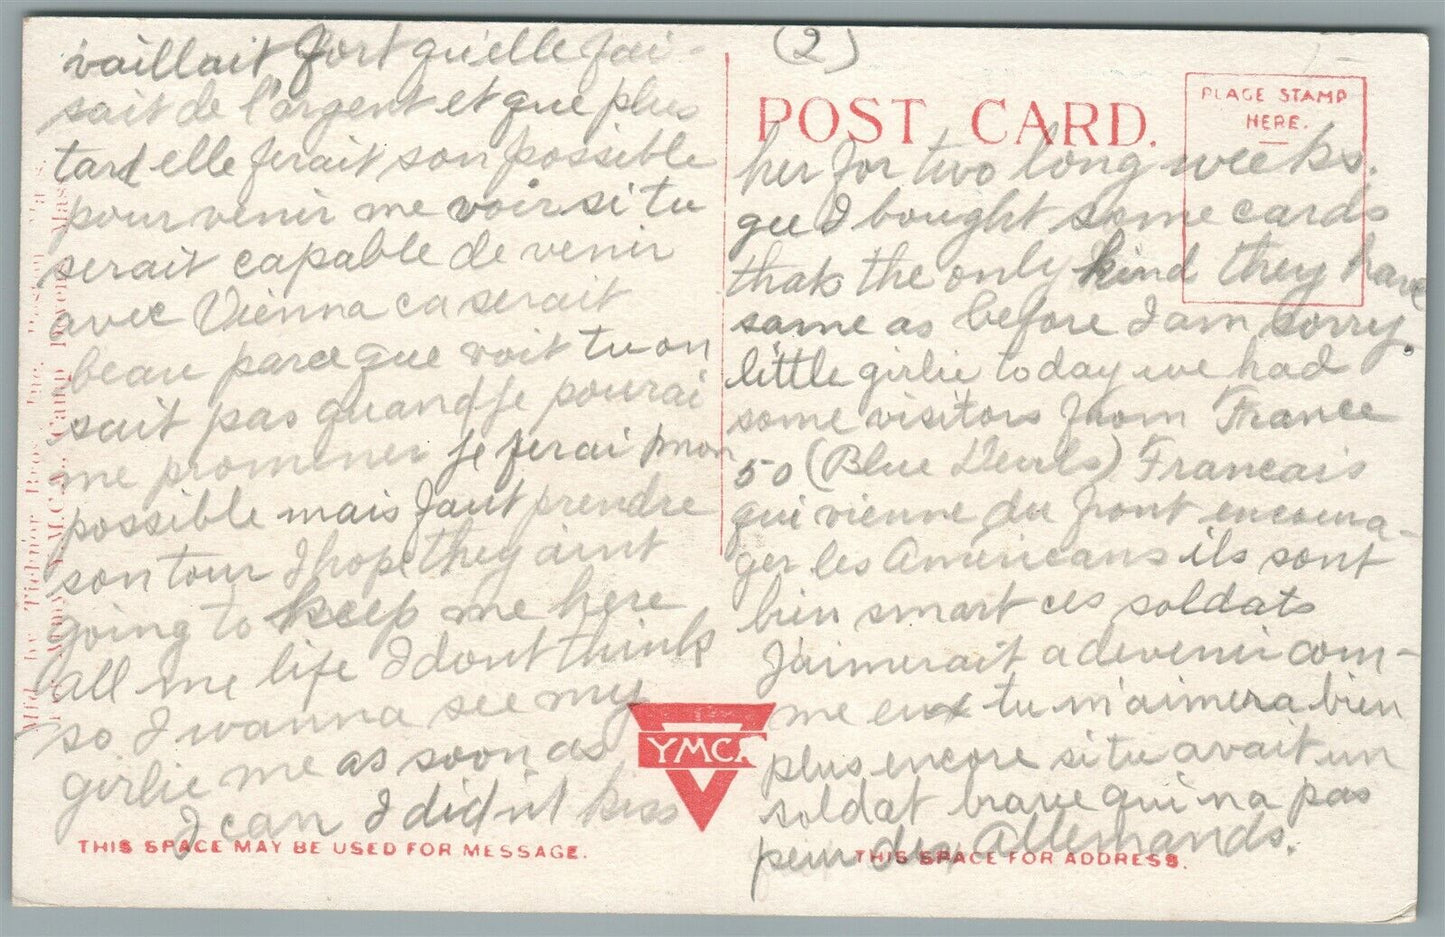 (2)
vaillait fort qu'elle fai-
sait de l'argent et que plus
tard elle ferait son possible
pour venir me voir si tu
serait capable de venir
avec Vienna ca serait
beau parce que voit tu on
sait pas quand je pourai
me promener je ferai mon
possible mais faut prendre
son tour I hope they aint
going to keep me here
all me life I dont think
so I wanna see my
girlie me as soon as
I can I didn't kiss
THIS SPACE MAY BE USED FOR MESSAGE.
YMCA
POST CARD.
PLACE STAMP
HERE.
her for two long weeks.
gee I bought some cards
thats the only kind they have
same as before I am sorry.
little girlie today we had
some visitors from France
50 (Blue Devils) Francais
qui vienne du front encoura-
ger les Americans ils sont
bien smart ces soldats
J'aimerait a devenir com-
me eux tu m'aimera bien
plus encore si tu avait un
soldat brave qui na pas
peur des Allemands.
THIS SPACE FOR ADDRESS.